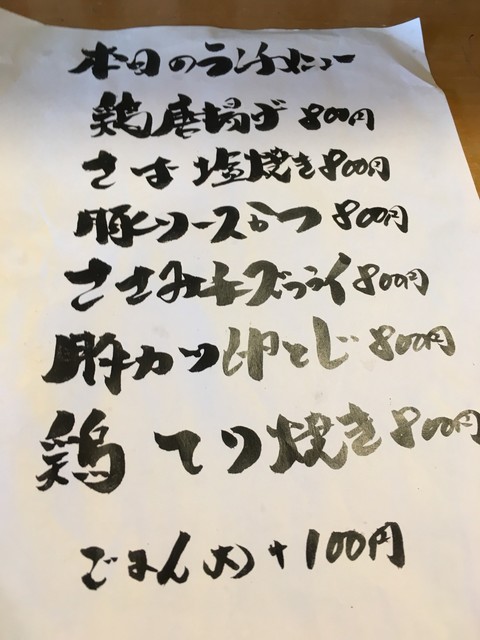 本日のランチメニュー
鶏唐揚げ 800円
さば 塩焼き 800円
豚ヒレソースかつ 800円
ささみチーズフライ 800円
豚カツ卵とじ 800円
鶏 てり焼き 800円
ごはん(大)+100円